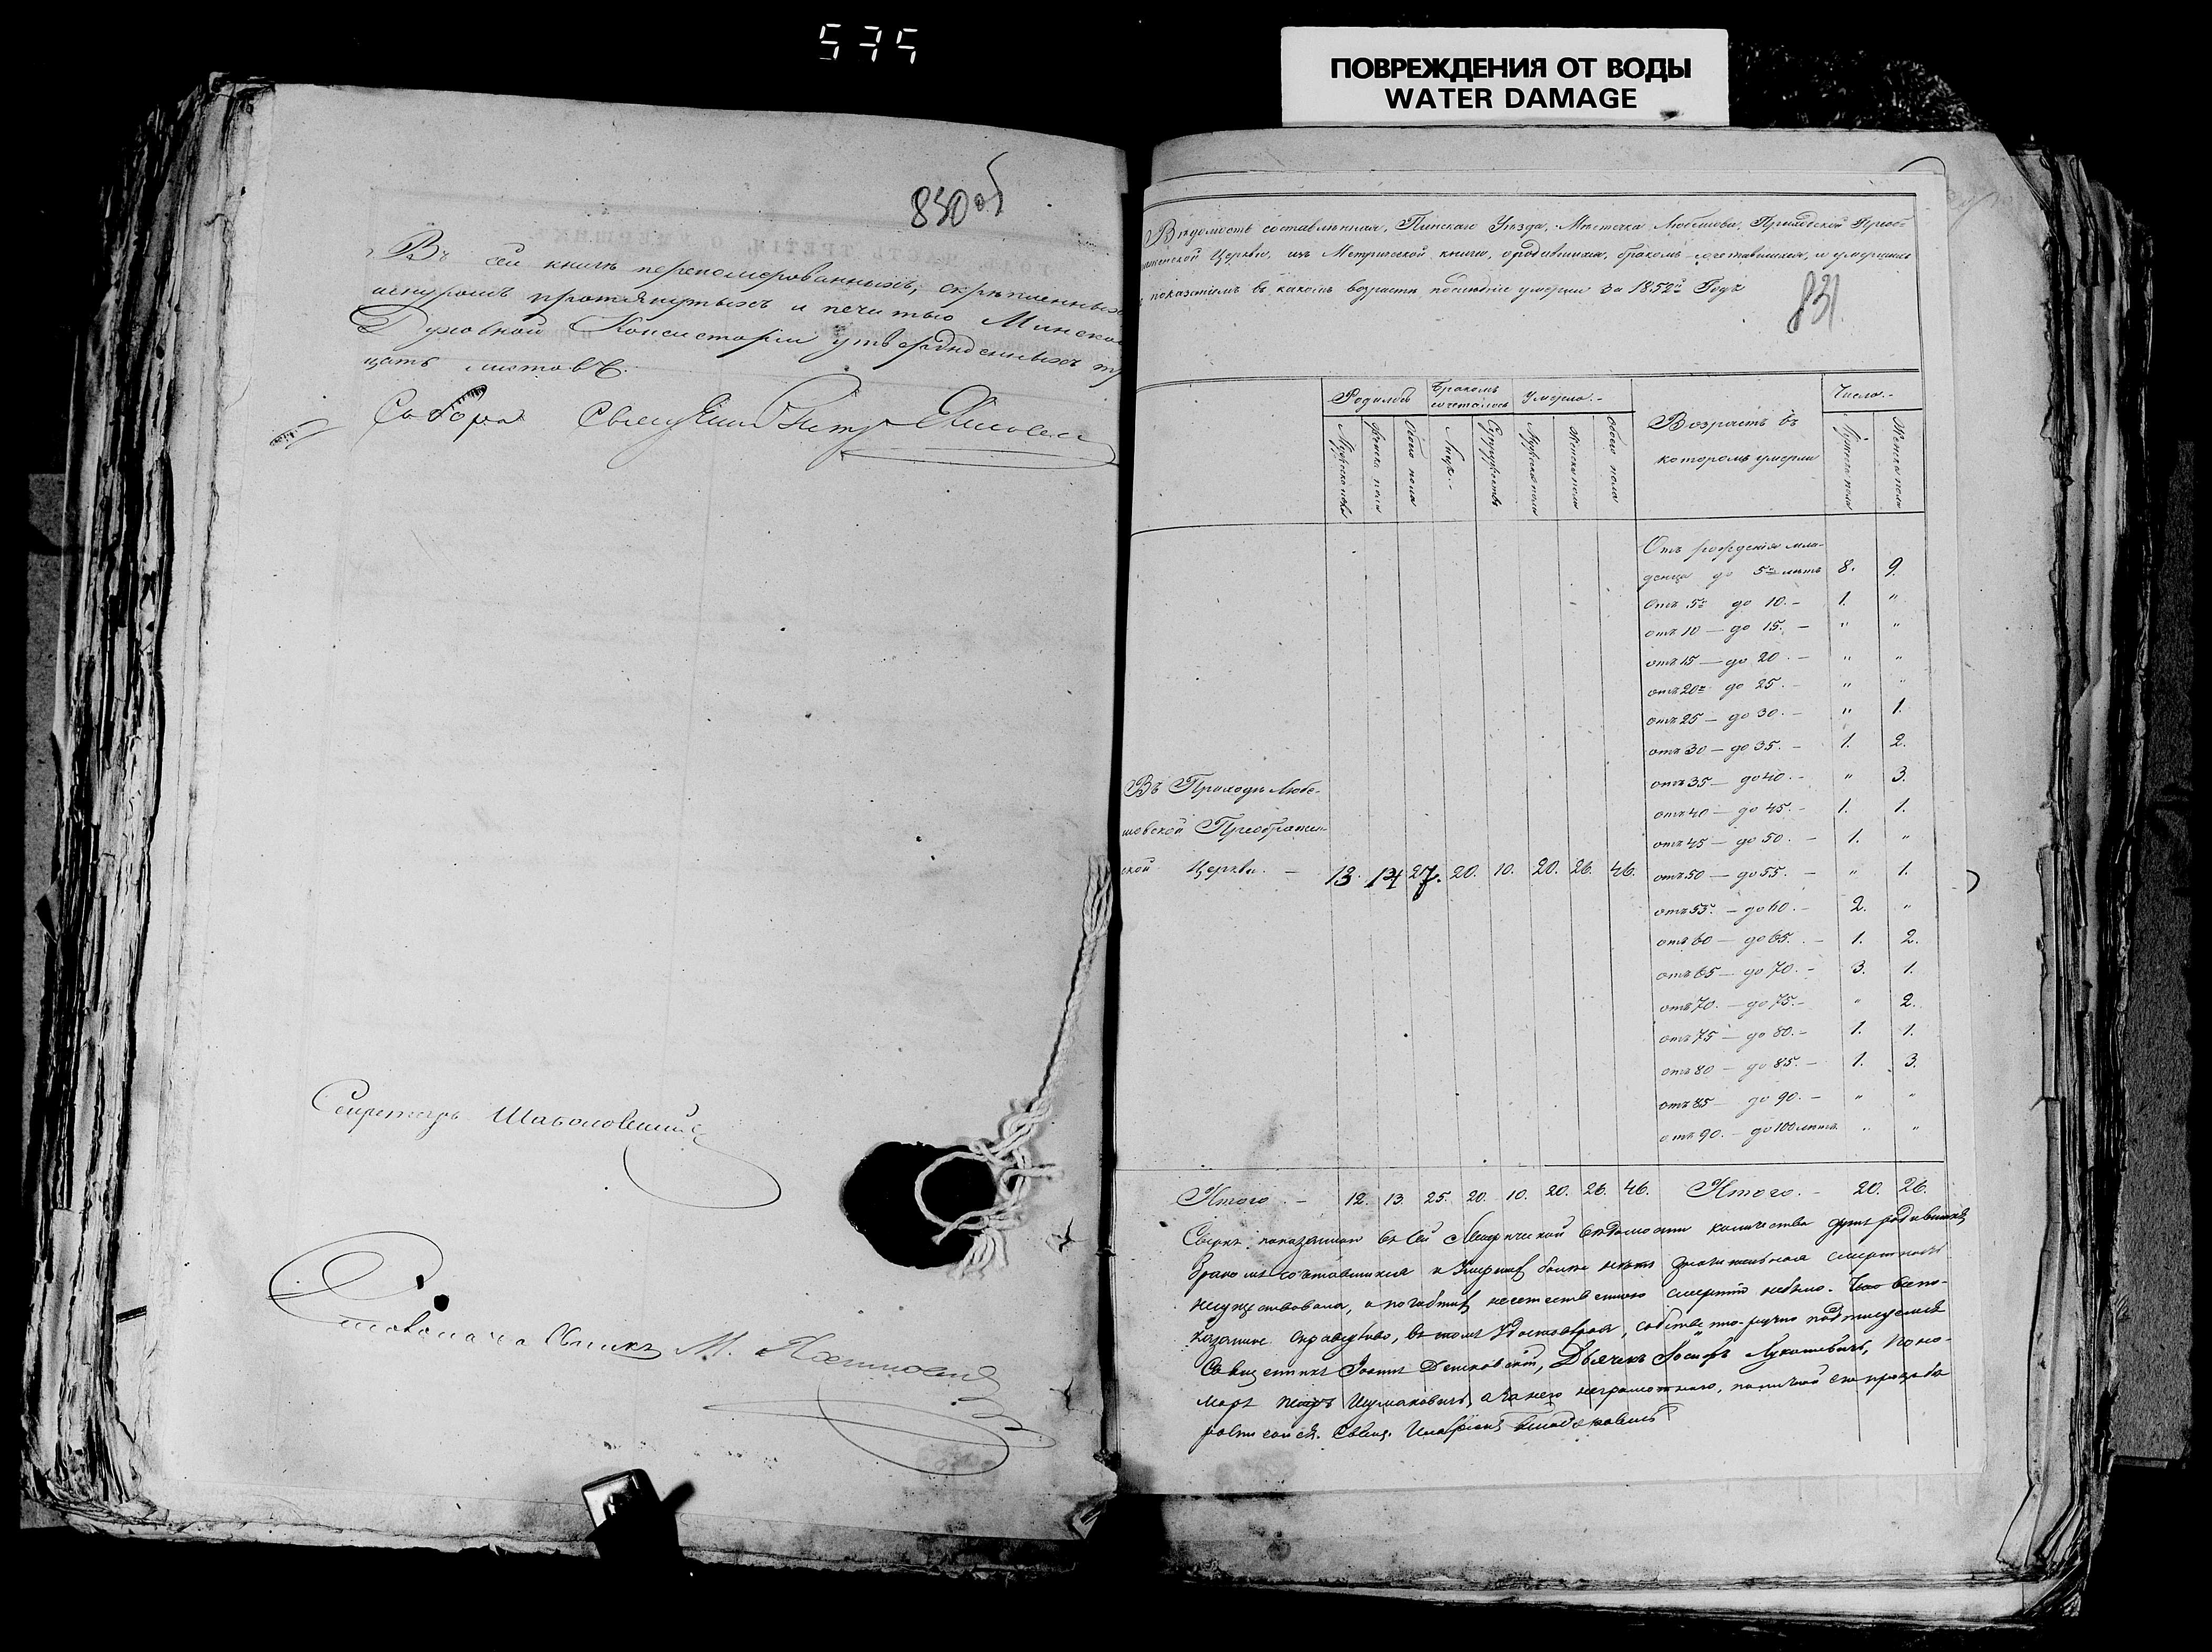 575
ПОВРЕЖДЕНИЯ ОТ ВОДЫ
WATER DAMAGE
830 об
Въ сей книгѣ перенумерованныхъ, скрѣпленныхъ
шнуромъ протянутыхъ и печатью Минской
Духовной Консисторіи утвержденныхъ
цать листовъ.
Собора Священникъ
Секретарь
Столоначальникъ М.
Вѣдомость составленная, Пинскаго Уѣзда, Мѣстечка Любешова, Приходской Преоб-
Церкви, изъ Метрической книги, о родившихся, бракомъ сочетавшихся, и умершихъ
показаніемъ въ какомъ возрастѣ послѣдніе умерли за 1852й Годъ
831
Родилось Бракомъ сочеталось Умерло. Возрастъ въ которомъ умерли Число.
Мужеска пола Женска пола Обоего пола Лицъ Супружествъ Мужеска пола Женска пола Обоего пола Мужеска пола Женска пола
Отъ рожденія мла-
денца до 5 лѣтъ 8. 9.
отъ 5 до 10. - 1. "
отъ 10 — до 15. - " "
отъ 15 — до 20. - " "
отъ 20 до 25. - " "
отъ 25 — до 30. - " 1.
отъ 30 — до 35. - 1. 2.
отъ 35 — до 40. - " 3.
отъ 40 — до 45. - 1. 1.
отъ 45 — до 50. - 1. "
отъ 50 — до 55. - " 1.
отъ 55. — до 60. - 2. "
отъ 60 — до 65. - 1. 2.
отъ 65 — до 70. - 3. 1.
отъ 70. — до 75. - " 2.
отъ 75 — до 80. - 1. 1.
отъ 80 — до 85. - 1. 3.
отъ 85 — до 90. - " "
отъ 90. — до 100 лѣтъ. " "
Въ Приходѣ Любе-
шовской Преображен-
ской Церкви. — 13. 14 27. 20. 10. 20. 26. 46.
Итого. — 12. 13. 25. 20. 10. 20. 26. 46. Итого. — 20. 26.
Сверхъ показанного въ сей Метрической вѣдомости количества душъ родившихся
бракомъ сочѣтавшихся и Умершихъ болѣе нѣтъ значительная смертность
несуществовала, а погибшихъ неестественною смертію небыло. Что всепо-
казанное справедливо, въ томъ удостовѣряя, собственно-ручно подписуемся
Священникъ Іоаннъ, Дьячекъ Іосифъ Лукашевичъ, Поно-
марь Петръ Шумаковичъ, а за него неграмотнаго, по личной его просьбѣ
росписался. Свящ.